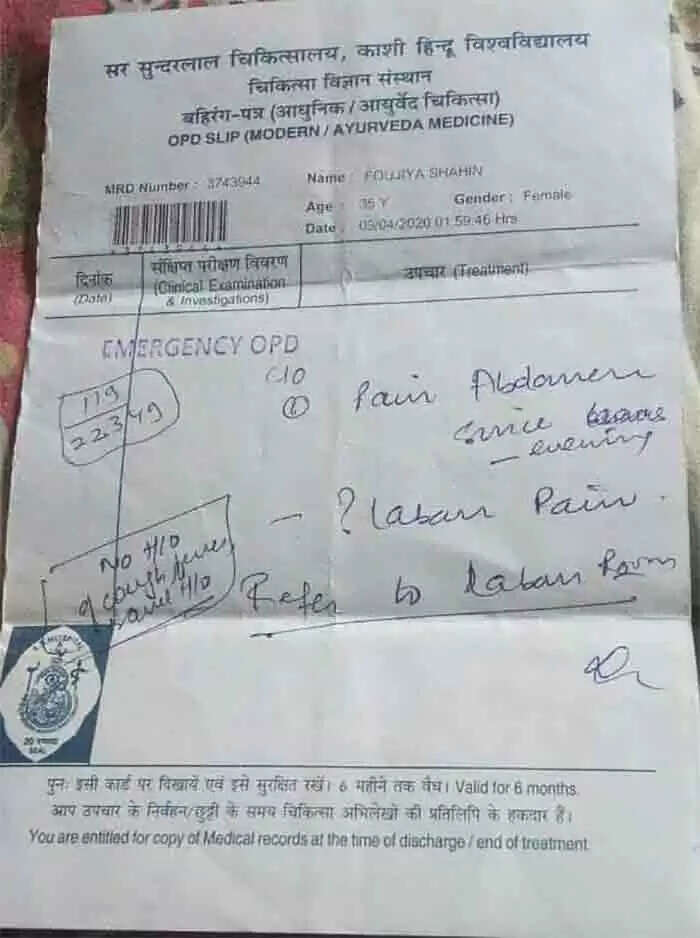 सर सुन्दरलाल चिकित्सालय, काशी हिन्दू विश्वविद्यालय
चिकित्सा विज्ञान संस्थान
बहिरंग-पत्र (आधुनिक / आयुर्वेद चिकित्सा)
OPD SLIP (MODERN / AYURVEDA MEDICINE)
MRD Number : 3743944
Name : FOUJIYA SHAHIN
Age : 35 Y Gender : Female
Date : 09/04/2020 01:59:46 Hrs
दिनांक
(Date)
संक्षिप्त परीक्षण विवरण
(Clinical Examination
& Investigations)
उपचार (Treatment)
EMERGENCY OPD
119
22349
C/O
① Pain Abdomen
since
– evening
– ? Labour Pain.
No H/O
of cough fever
H/O
Refer to Labour Room
पुनः इसी कार्ड पर दिखायें एवं इसे सुरक्षित रखें। 6 महीने तक वैध। Valid for 6 months.
आप उपचार के निर्वहन/छुट्टी के समय चिकित्सा अभिलेखों की प्रतिलिपि के हकदार हैं।
You are entitled for copy of Medical records at the time of discharge / end of treatment.